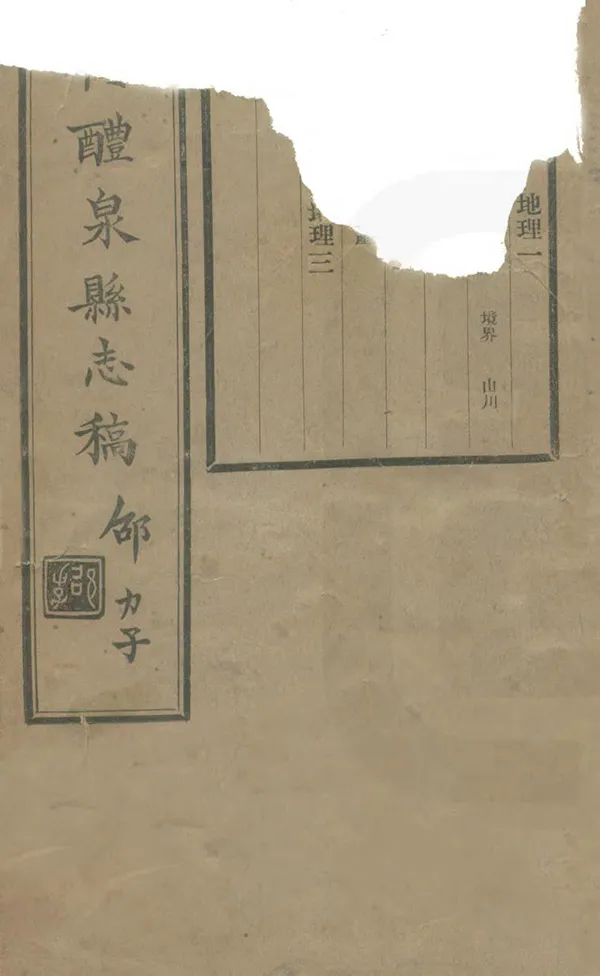 地理一
境界 山川
地理三
醴泉縣志稿
邵力子